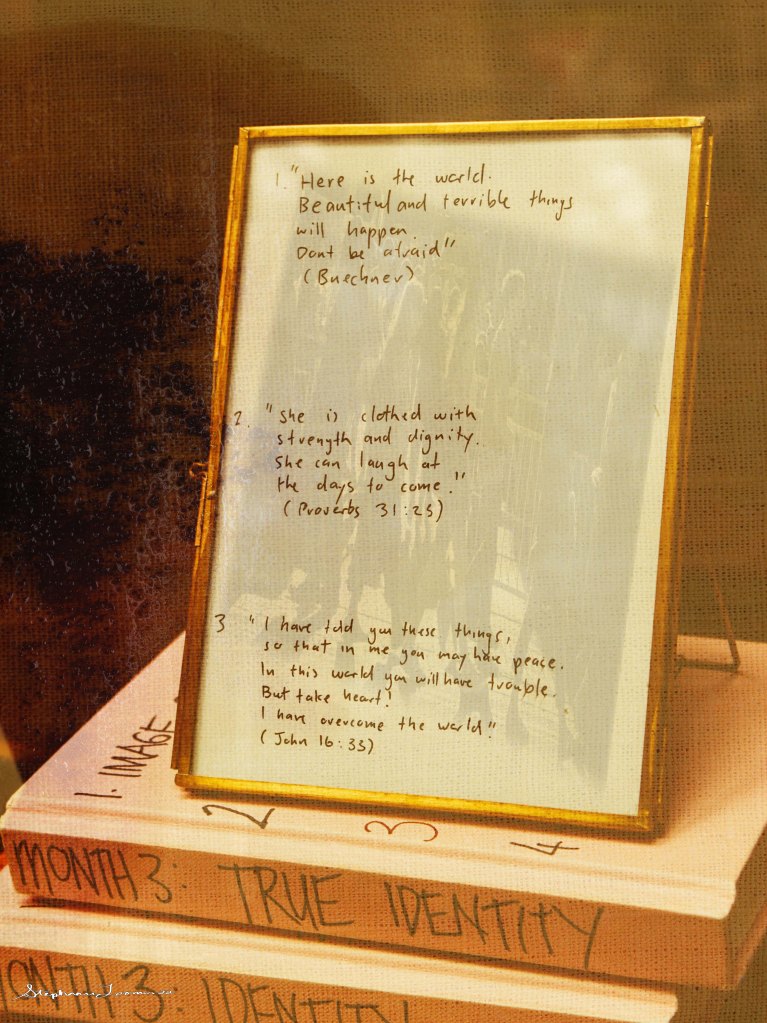 1. "Here is the world.
Beautiful and terrible things
will happen.
Dont be afraid"
(Buechner)
2. "She is clothed with
strength and dignity.
She can laugh at
the days to come."
(Proverbs 31:25)
3 "I have told you these things,
so that in me you may have peace.
In this world you will have trouble.
But take heart!
I have overcome the world."
(John 16:33)
1. IMAGE
2
3
4
MONTH 3: TRUE IDENTITY
MONTH 3: IDENTITY